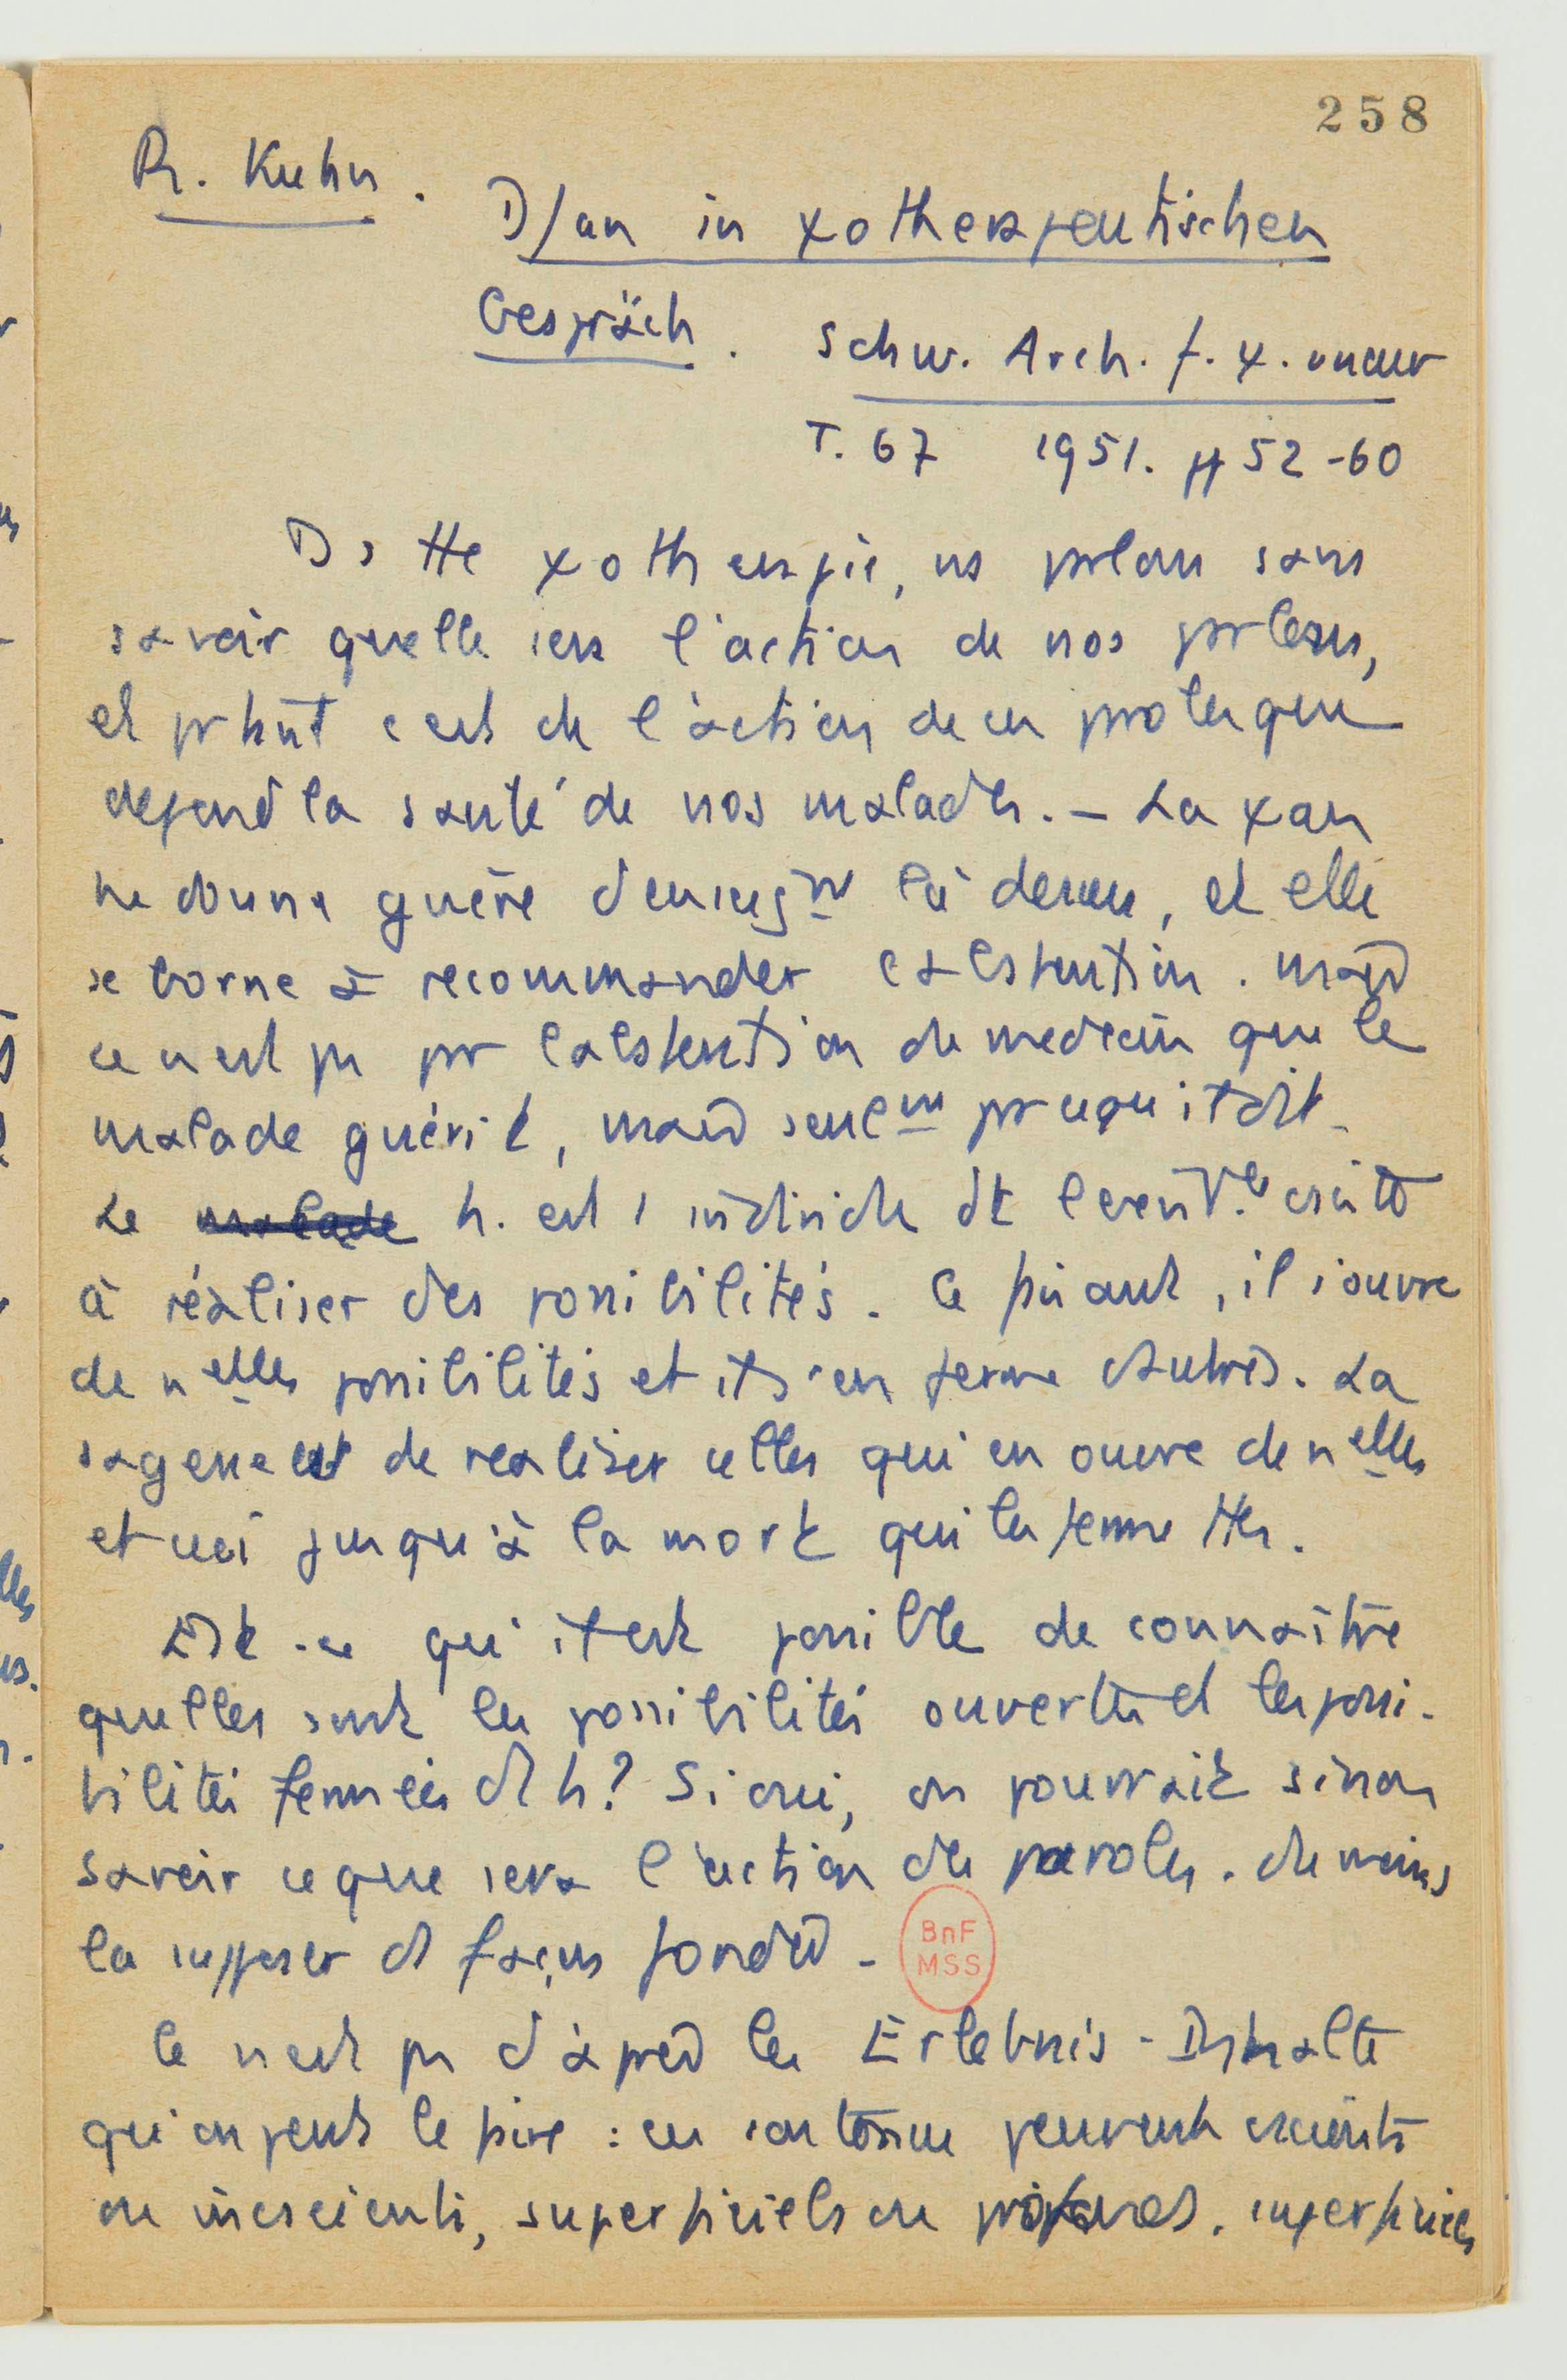 258
R. Kuhn.
D/an in χotherapeutischen
Gespräch. Schw. Arch. f. χ.
T. 67 1951. pp 52-60
Ds tte χotherapie, ns parlons sans
savoir quelle sera l'action de nos paroles,
et prtant c'est de l'action de ces paroles que
depend la santé de nos malades. – La χan
ne donne guère d'enseignt là dessus, et elle
se borne à recommander l'abstention. mais
ce n'est pas par l'abstention du medecin que le
malade guérit, mais seulemt parce qu'il dit.
Le malade h. est 1 individu dt consiste
à réaliser des possibilités. Ce faisant, il s'ouvre
de nelles possibilités et il s'en ferme d'autres. La
sagesse est de realiser celles qui en ouvre de nelles
et ceci jusqu'à la mort qui les ferme ttes.
Est-ce qu'il est possible de connaître
quelles sont les possibilités ouvertes et les possi-
bilités fermées d'1 h? Si oui, on pourrait sinon
savoir ce que sera l'action des paroles. du moins
la supposer de façon fondée.
BnF
MSS
Ce n'est pas d'après les Erlebnis-Inhalte
qu'on peut le faire : ces contenus peuvent conscients
ou inconscients, superficiels ou profonds. superficiels